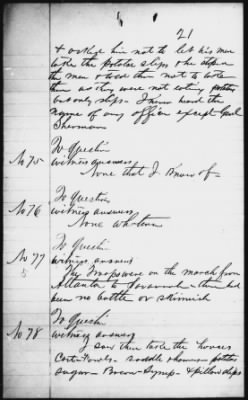 21
& asked him not to let his men
take the potato slips & he stopped
the men & told them not to take
them as they were not eating potatoes
but only slips. I never heard the
name of any officer except Genl
Sherman
No 75
To Question
witness answers
None that I know of
No 76
To Question
witness answers
None whatever
No 77
To Questn
witness answers
The Troops were on the march from
Atlanta to Savannah - there had
been no battle or skirmish
No 78
To Questn
witness answers
I saw them take the horses
Cart - Fowls - saddle & harness - potatoes
sugar - Bacon - Syrup - & pillow slips